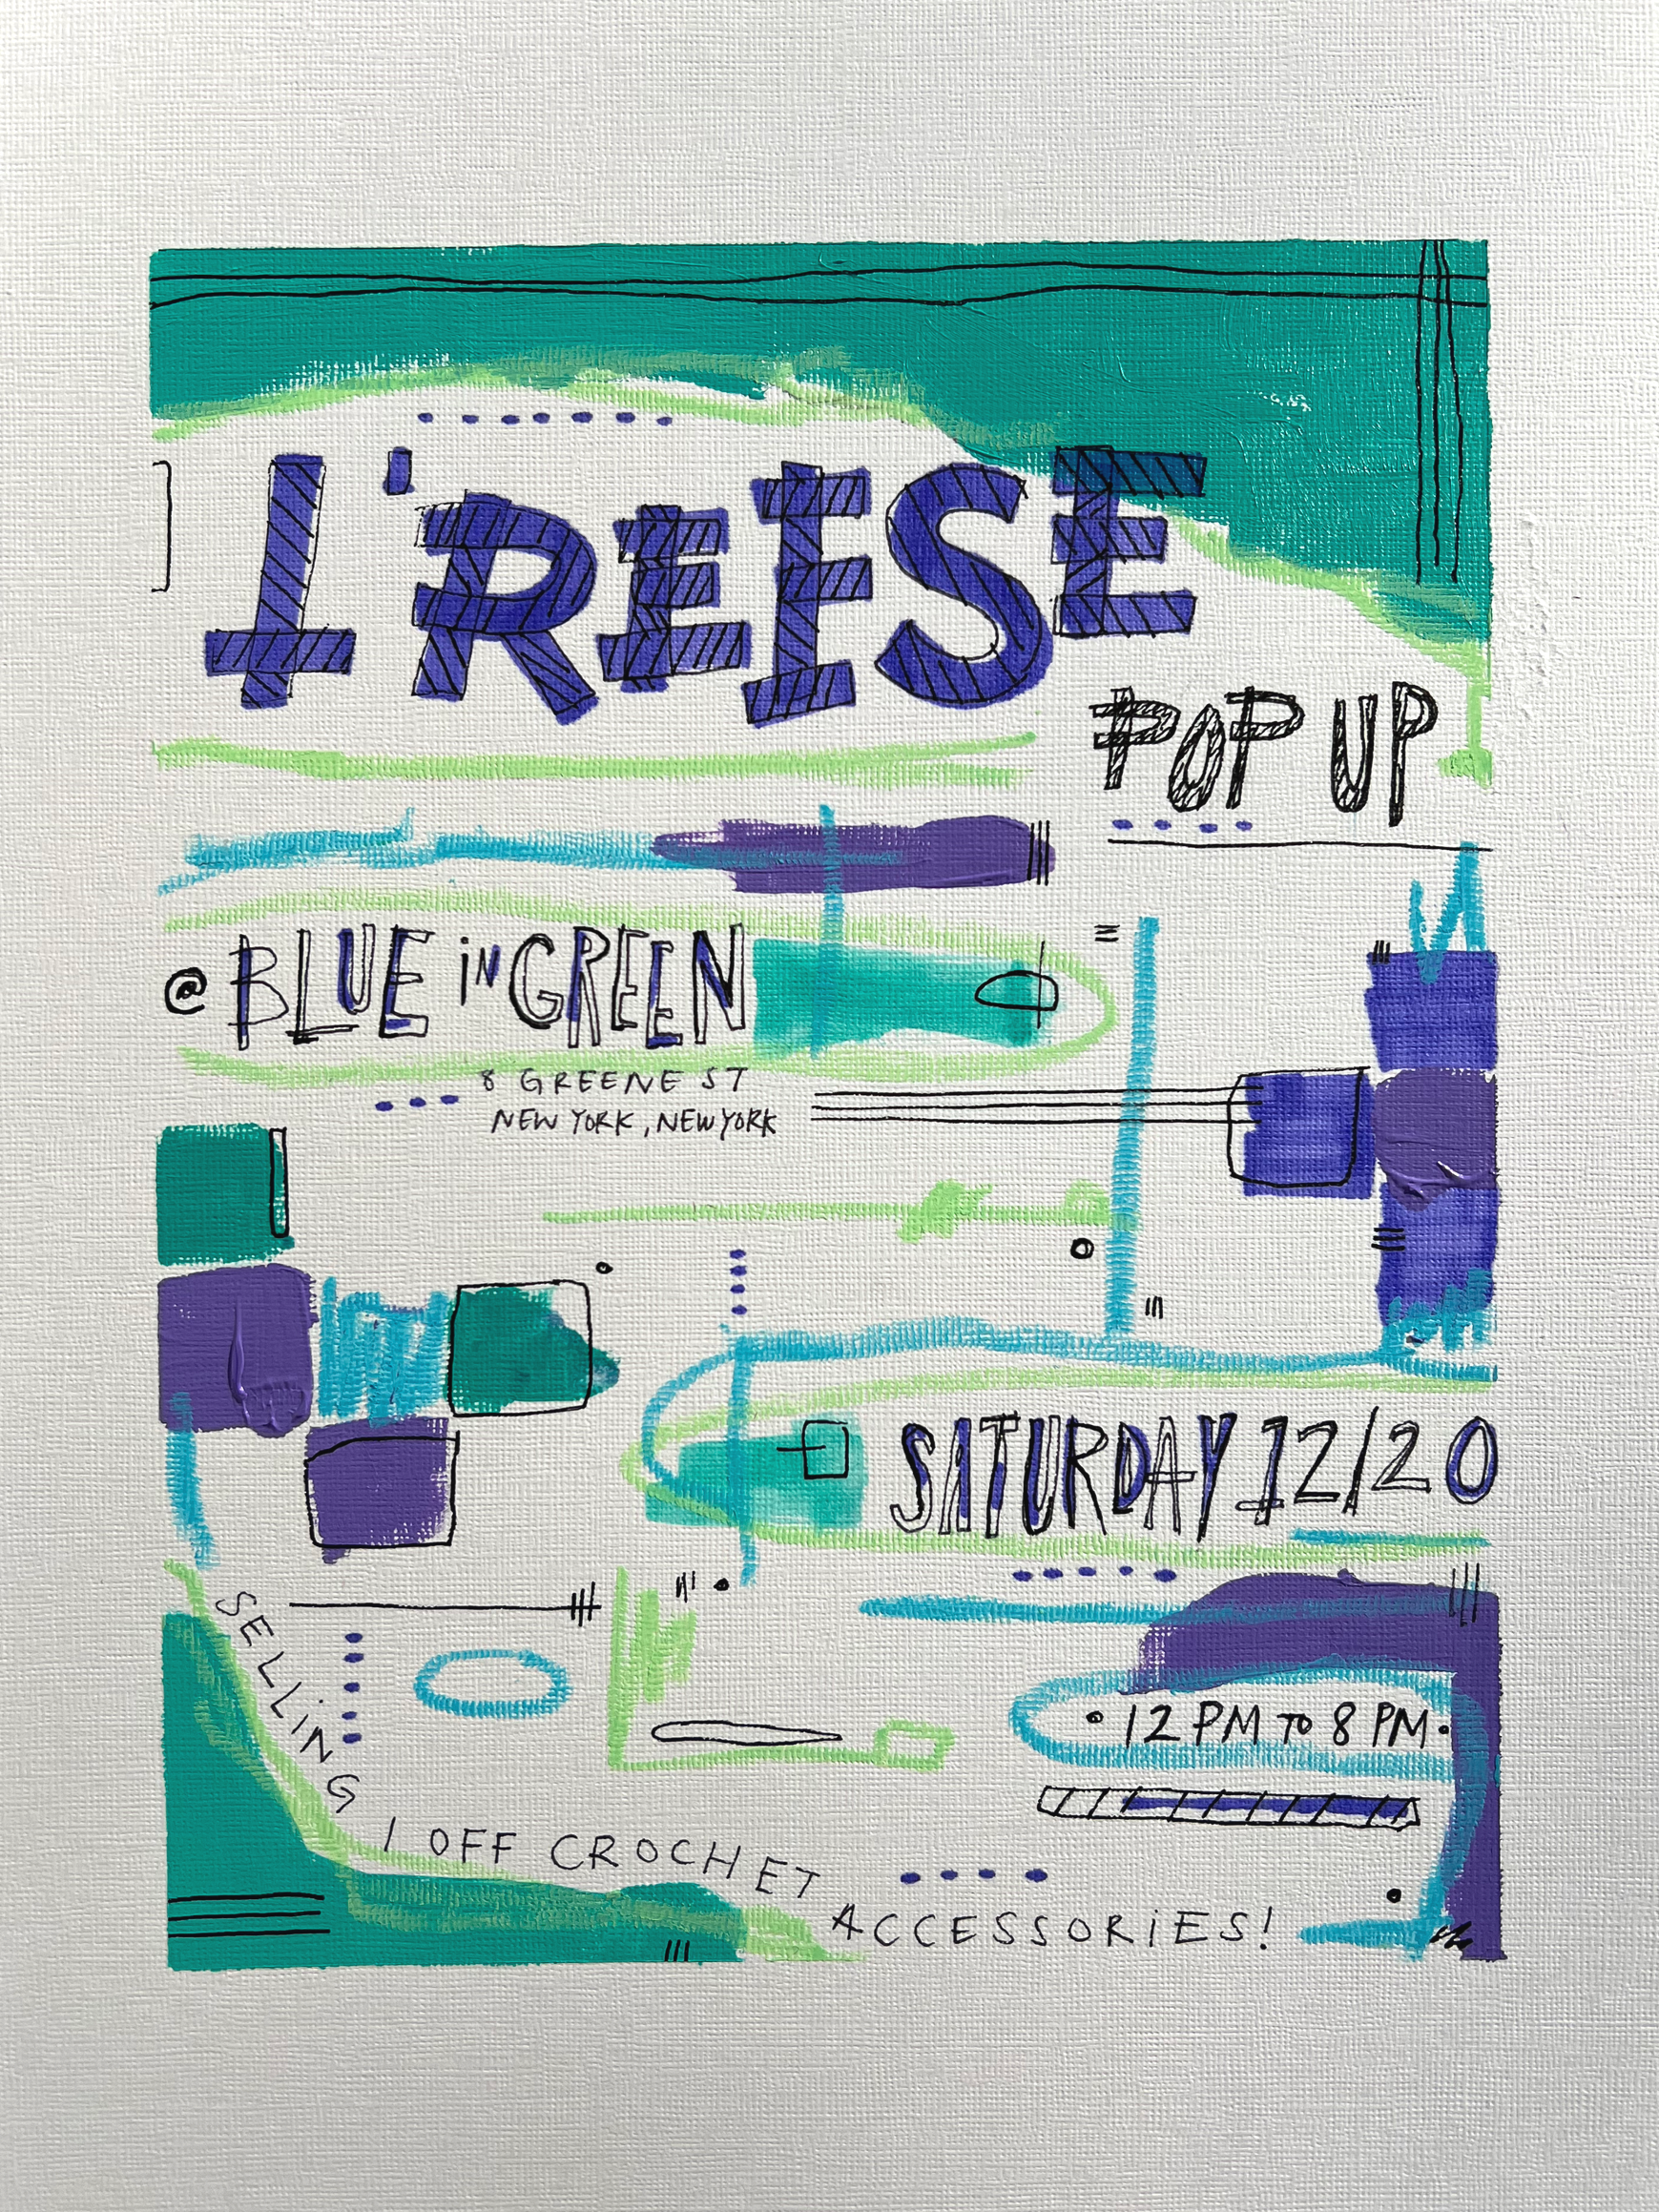 L'REESE
POP UP
@ BLUE iN GREEN
8 GREENE ST
NEW YORK, NEW YORK
SATURDAY 12/20
12 PM TO 8 PM
SELLiNG
1 OFF CROCHET
ACCESSORiES!